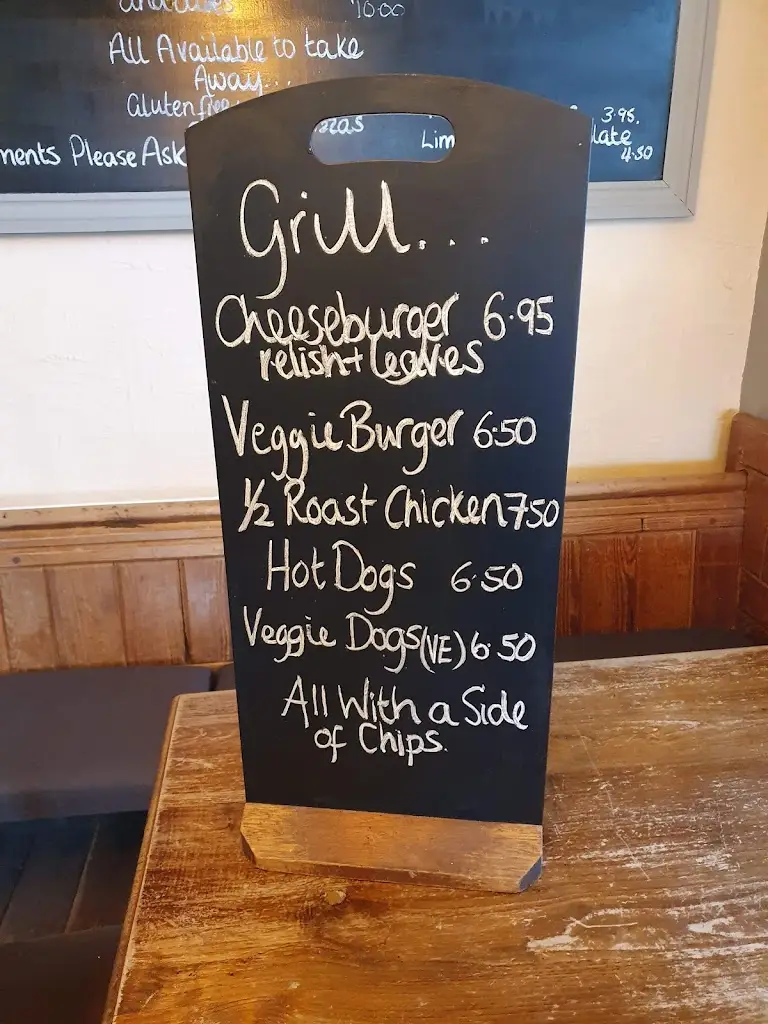 10.00
All Available to take
Away...
Gluten free
ments Please Ask
Lim
3.95.
late
4.50
Grill....
Cheeseburger 6.95
relish + leaves
Veggie Burger 6.50
1/2 Roast Chicken 7.50
Hot Dogs 6.50
Veggie Dogs (VE) 6.50
All With a Side
of Chips.